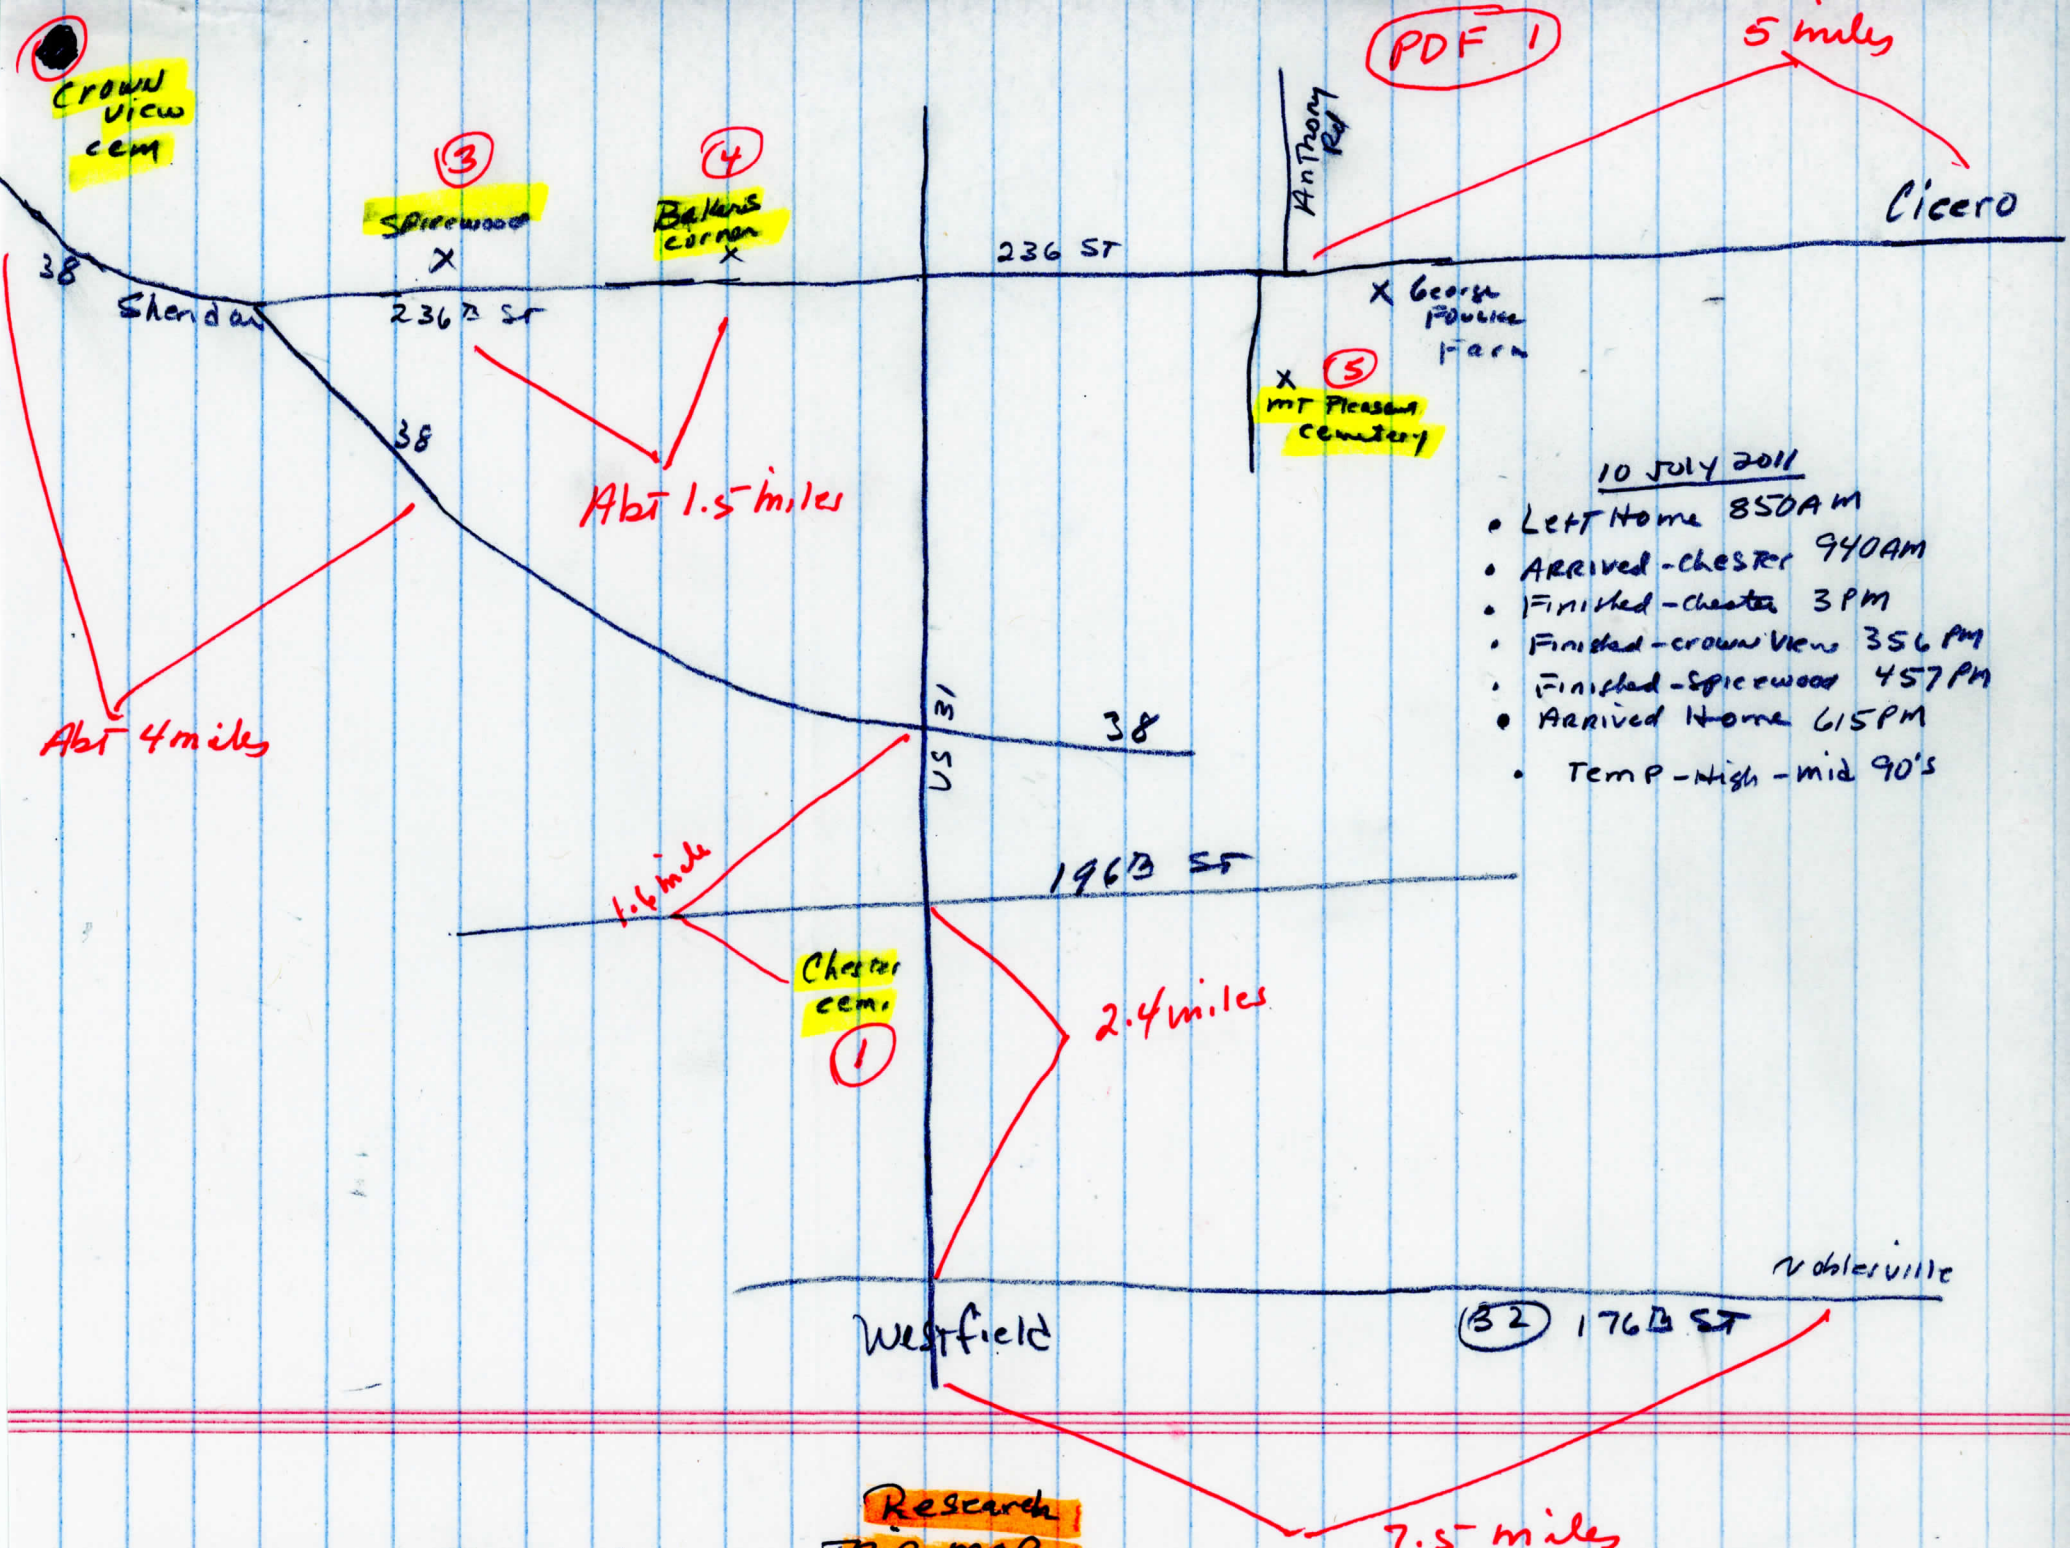 PDF 1
5 miles
Crown
View
cem
3
4
Spicewood
X
Bakers
corner
X
Anthony
Rd
Cicero
236 ST
38
Sheridan
236th ST
X George
Foulke
Farm
X
5
MT Pleasant
cemetery
38
Abt 1.5 miles
10 July 2011
• Left Home 850AM
• Arrived - Chester 940AM
• Finished - Chester 3PM
• Finished - Crown View 356 PM
• Finished - Spicewood 457PM
• Arrived Home 615PM
• Temp - High - mid 90's
Abt 4 miles
US 31
38
1.6 mile
196th ST
Chester
cem.
1
2.4 miles
Noblesville
Westfield
32 176th ST
Research
Trip map
7.5 miles